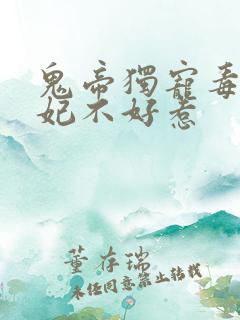 鬼帝獨寵毒
妃不好惹
董存瑞
未经同意禁止转载